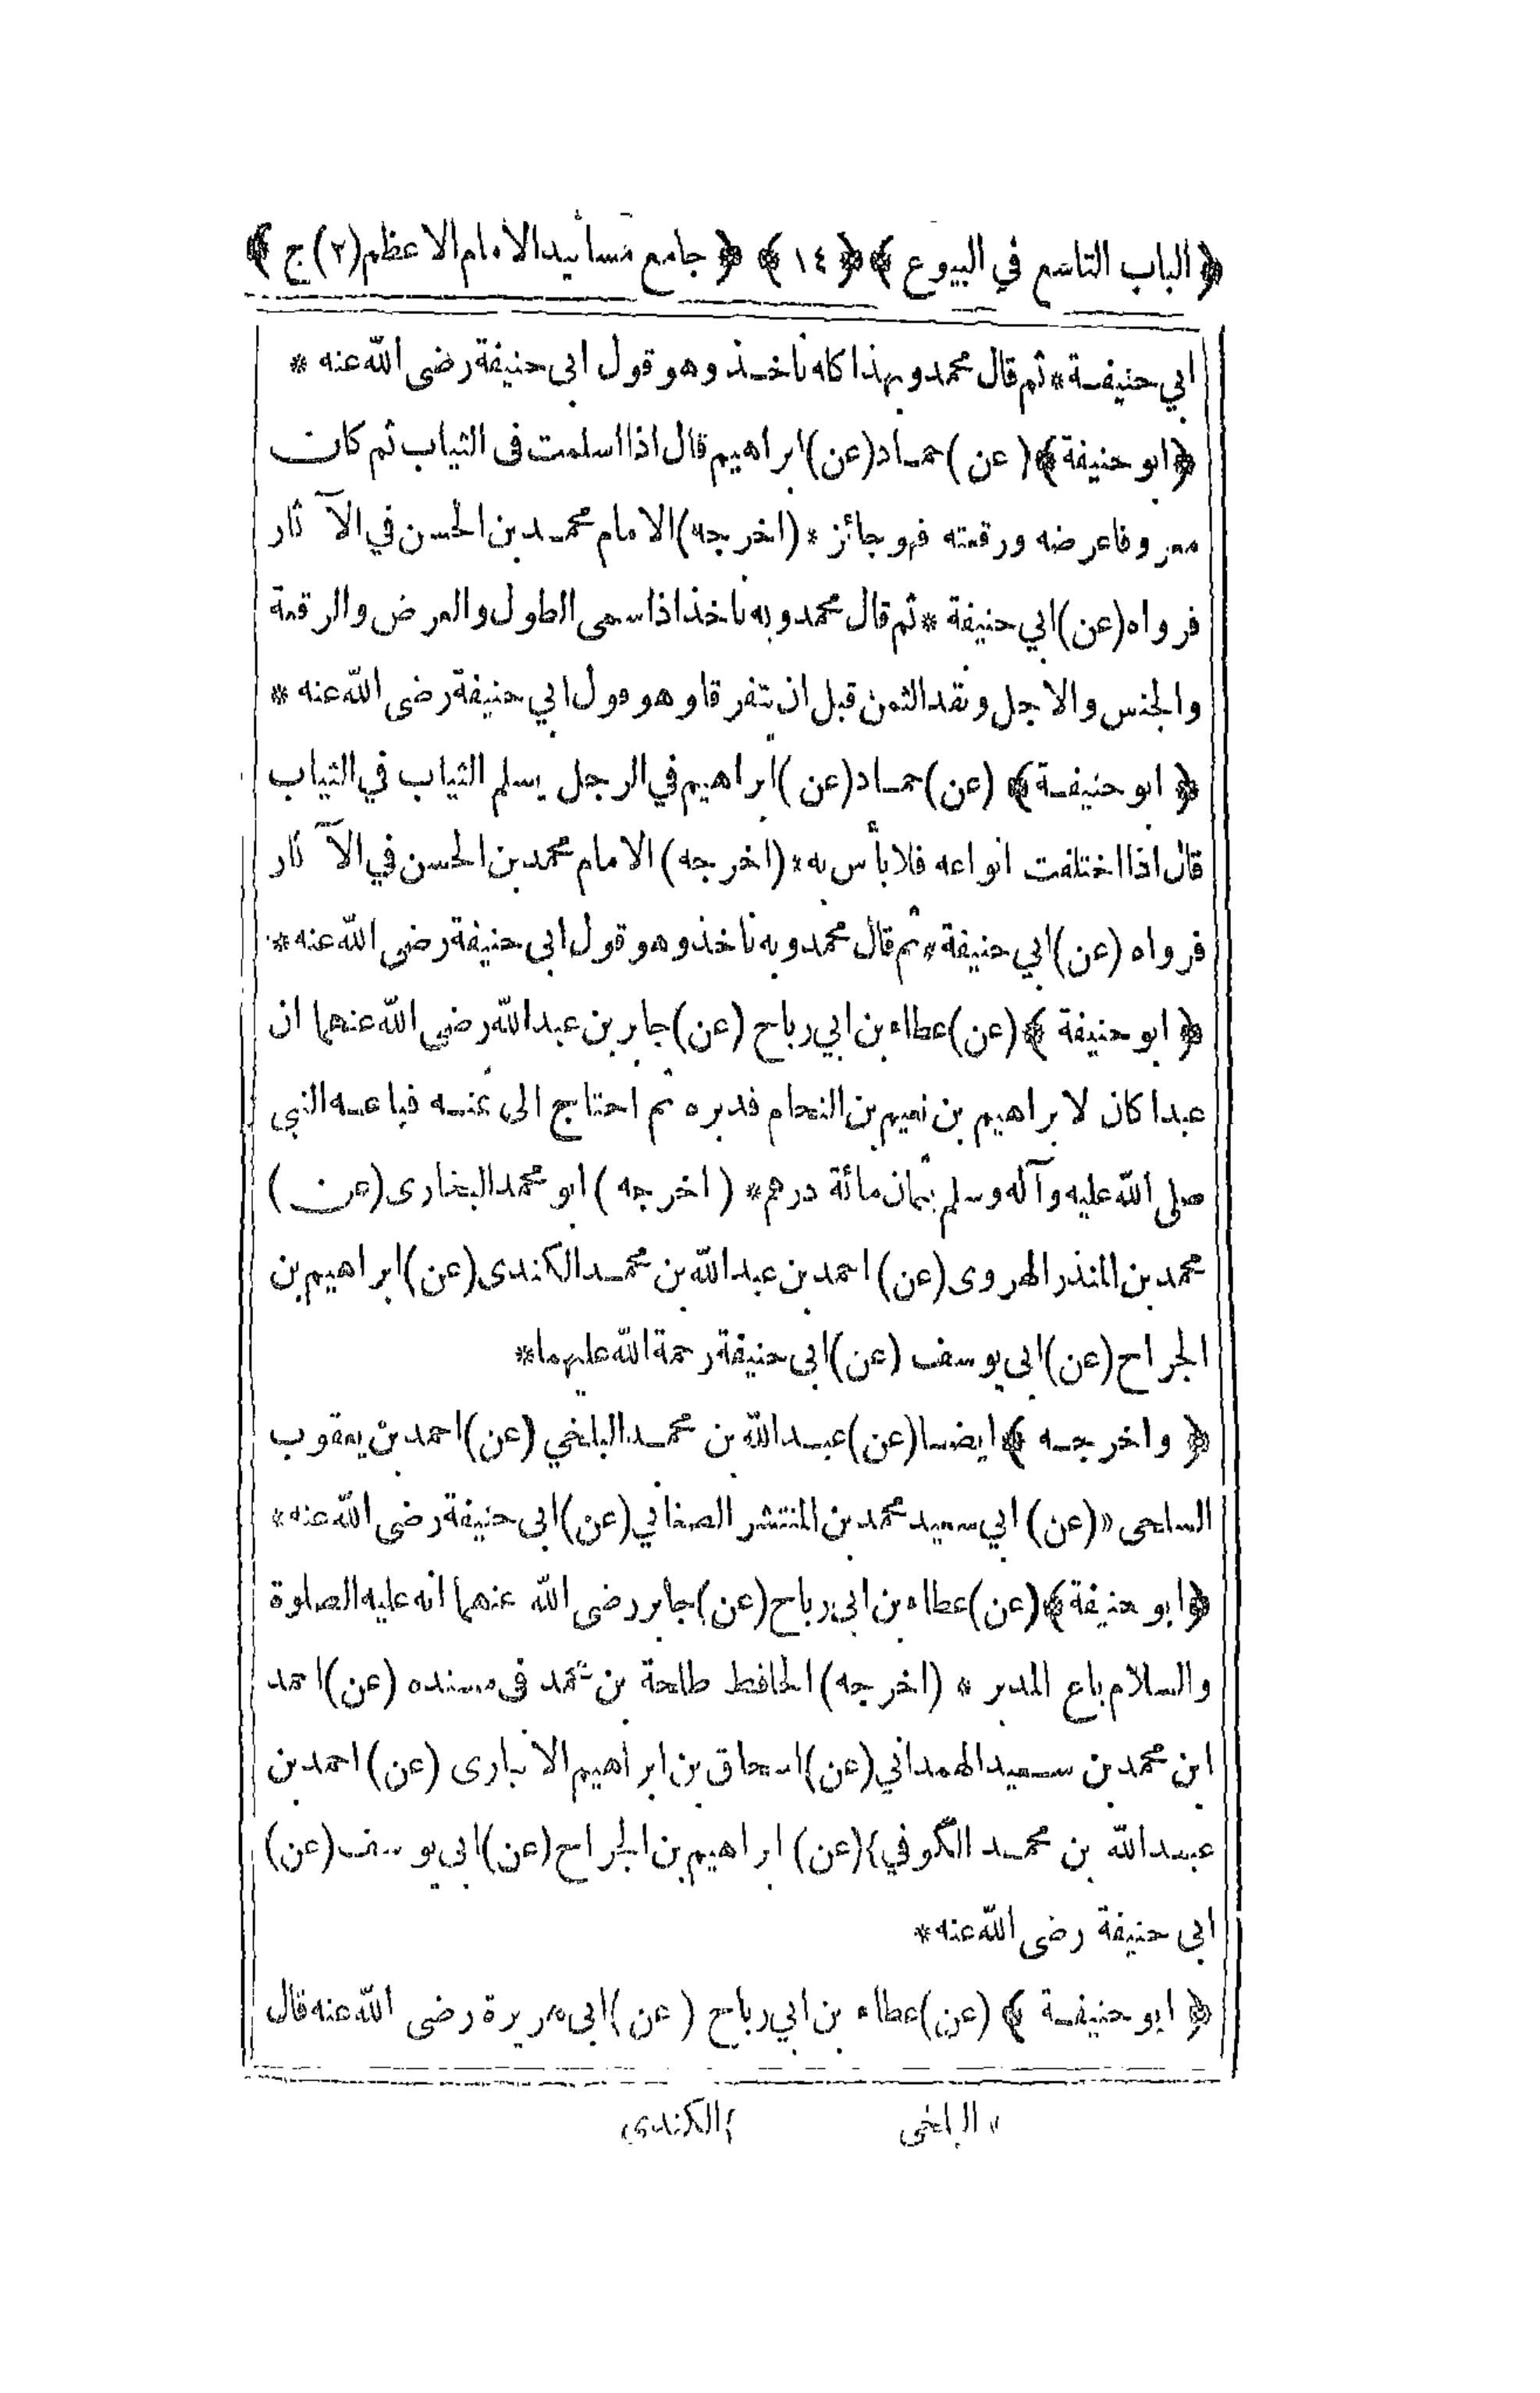 ﴿ الباب التاسع في البيوع ﴾ ﴿ ١٤ ﴾ ﴿ جامع مسانيد الامام الاعظم (٢) ج ﴾
ابي حنيفة * ثم قال محمد وبهذا كله ناخذ وهو قول ابى حنيفة رضى الله عنه *
﴿ ابو حنيفة ﴾ ( عن ) حماد (عن) ابراهيم قال اذا اسلمت فى الثياب ثم كان
معروفا عرضه ورقعته فهو جائز * (اخرجه) الامام محمد بن الحسن في الآثار
فرواه (عن) ابي حنيفة * ثم قال محمد وبه ناخذ اذا سمى الطول والعرض والرقعة
والجنس والاجل ونقد الثمن قبل ان يتفرقا وهو قول ابي حنيفة رضى الله عنه *
﴿ ابو حنيفة ﴾ (عن) حماد (عن) ابراهيم في الرجل يسلم الثياب في الثياب
قال اذا اختلفت انواعه فلا بأس به * (اخرجه) الامام محمد بن الحسن في الآثار
فرواه (عن) ابي حنيفة * ثم قال محمد وبه ناخذ وهو قول ابى حنيفة رضى الله عنه *
﴿ ابو حنيفة ﴾ (عن) عطاء بن ابي رباح (عن) جابر بن عبد الله رضى الله عنهما ان
عبدا كان لابراهيم بن نعيم بن النحام فدبره ثم احتاج الى ثمنه فباعه النبي
صلى الله عليه وآله وسلم بثمان مائة درهم * ( اخرجه ) ابو محمد البخارى (عن)
محمد بن المنذر الهروى (عن) احمد بن عبد الله بن محمد الكندى (عن) ابراهيم بن
الجراح (عن) ابى يوسف (عن) ابى حنيفة رحمة الله عليهما *
﴿ واخرجه ﴾ ايضا (عن) عبد الله بن محمد البلخي (عن) احمد بن يعقوب
(عن) ابي سعيد محمد بن المنتشر الصغاني (عن) ابى حنيفة رضى الله عنه *
﴿ ابو حنيفة ﴾ (عن) عطاء بن ابى رباح (عن) جابر رضى الله عنهما انه عليه الصلوة
والسلام باع المدبر * (اخرجه) الحافظ طلحة بن محمد فى مسنده (عن) احمد
ابن محمد بن سعيد الهمداني (عن) اسحاق بن ابراهيم الانبارى (عن) احمد بن
عبد الله بن محمد الكوفي (عن) ابراهيم بن الجراح (عن) ابى يوسف (عن)
ابى حنيفة رضى الله عنه *
﴿ ابو حنيفة ﴾ (عن) عطاء بن ابي رباح ( عن ) ابى هريرة رضى الله عنه قال
البلخى الكندي